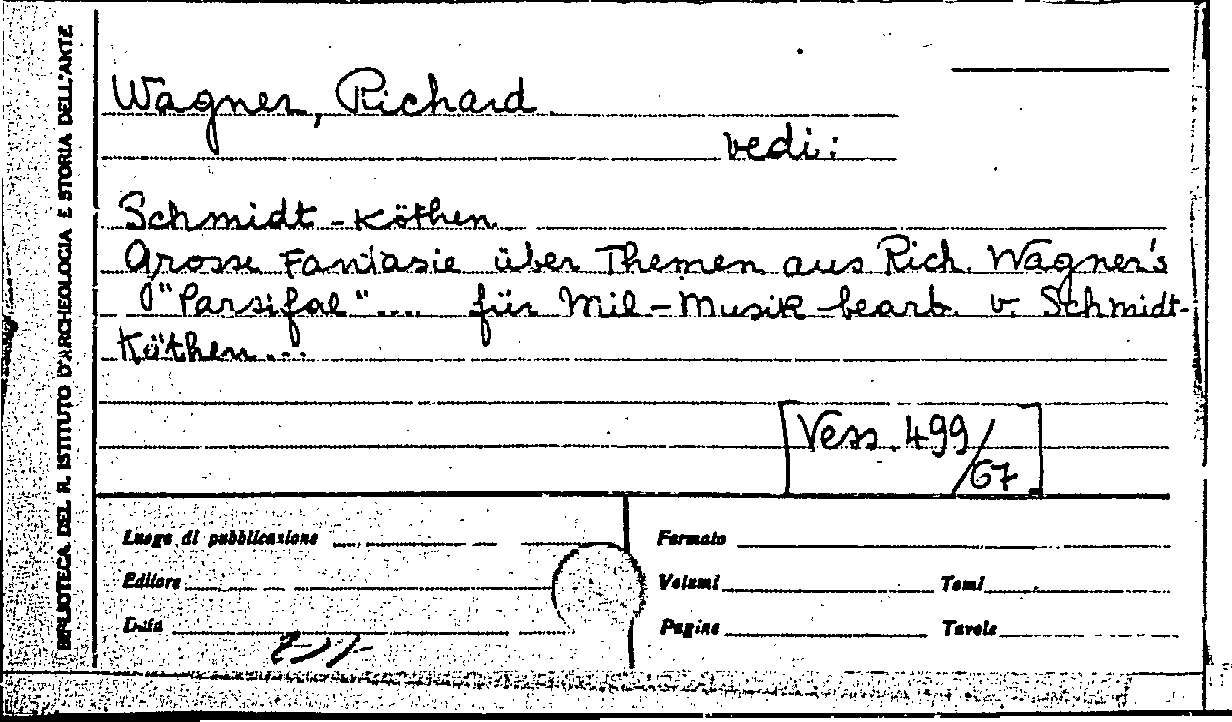 BIBLIOTECA DEL R. ISTITUTO D'ARCHEOLOGIA E STORIA DELL'ARTE
Wagner, Richard
vedi:
Schmidt-Köthen
Grosse Fantasie über Themen aus Rich. Wagner's
"Parsifal".... für Mil-Musik bearb. v. Schmidt-
Köthen...
Vess. 499/67
Luogo di pubblicazione
Formato
Editore
Volumi
Tomi
Data
Pagine
Tavole